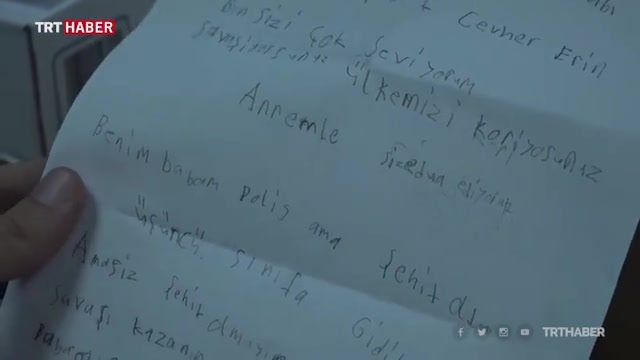 TRT HABER
Cevher Erin
Ben sizi çok seviyorum
savaşiyosunuz ülkemizi koriyosunuz
Annemle size dua ediyoruz
Benim babam polis ama şehit oldu
üçüncü sınıfa Gidi
Amasiz şehit olmayın
savaşı kazanın
Babam
TRTHABER